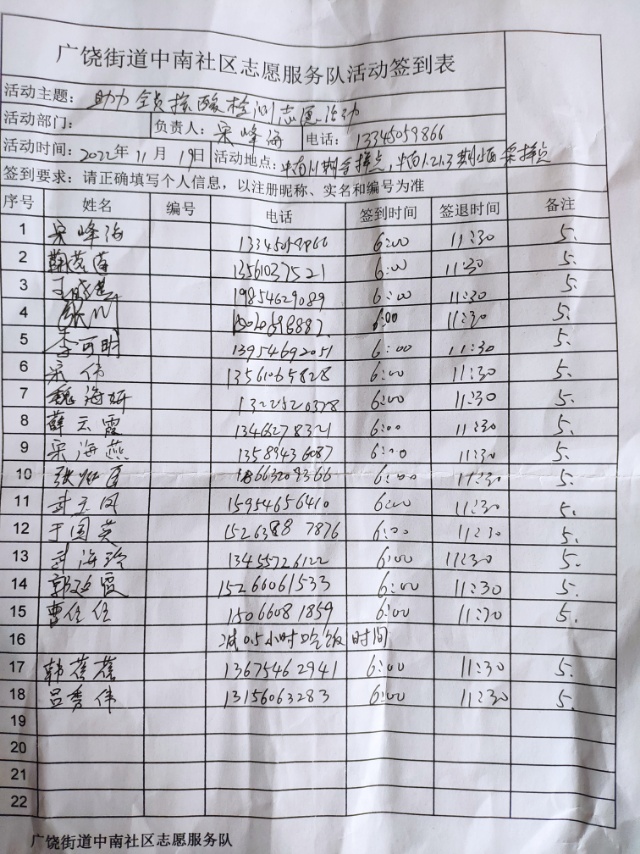 广饶街道中南社区志愿服务队活动签到表
活动主题： 助力全员核酸检测志愿活动
活动部门： 负责人： 宋峰海 电话： 13345059866
活动时间： 2022年11月19日 活动地点：
签到要求：请正确填写个人信息，以注册昵称、实名和编号为准
序号 姓名 编号 电话 签到时间 签退时间 备注
1 宋峰海 13345059866 6:00 11:30 5.
2 13561037521 6:00 11:30 5.
3 19854629089 6:00 11:30 5.
4 6:00 11:30 5.
5 李可明 13954692051 6:00 11:30 5.
6 宋伟 13561065828 6:00 11:30 5.
7 魏海妍 13225220378 6:00 11:30 5.
8 薛云霞 13466278321 6:00 11:30 5.
9 宋海燕 13589436087 6:00 11:30 5.
10 18663209366 6:00 11:30 5.
11 武玉凤 15954656410 6:00 11:30 5.
12 于国英 15263887876 6:00 11:30 5.
13 武海玲 13455726122 6:00 11:30 5.
14 郭延霞 15266061533 6:00 11:30 5.
15 曹任任 15066081859 6:00 11:30 5.
16 减0.5小时吃饭时间
17 韩蕉蕉 13675462941 6:00 11:30 5.
18 吕秀伟 13156063283 6:00 11:30 5.
19
20
21
22
广饶街道中南社区志愿服务队